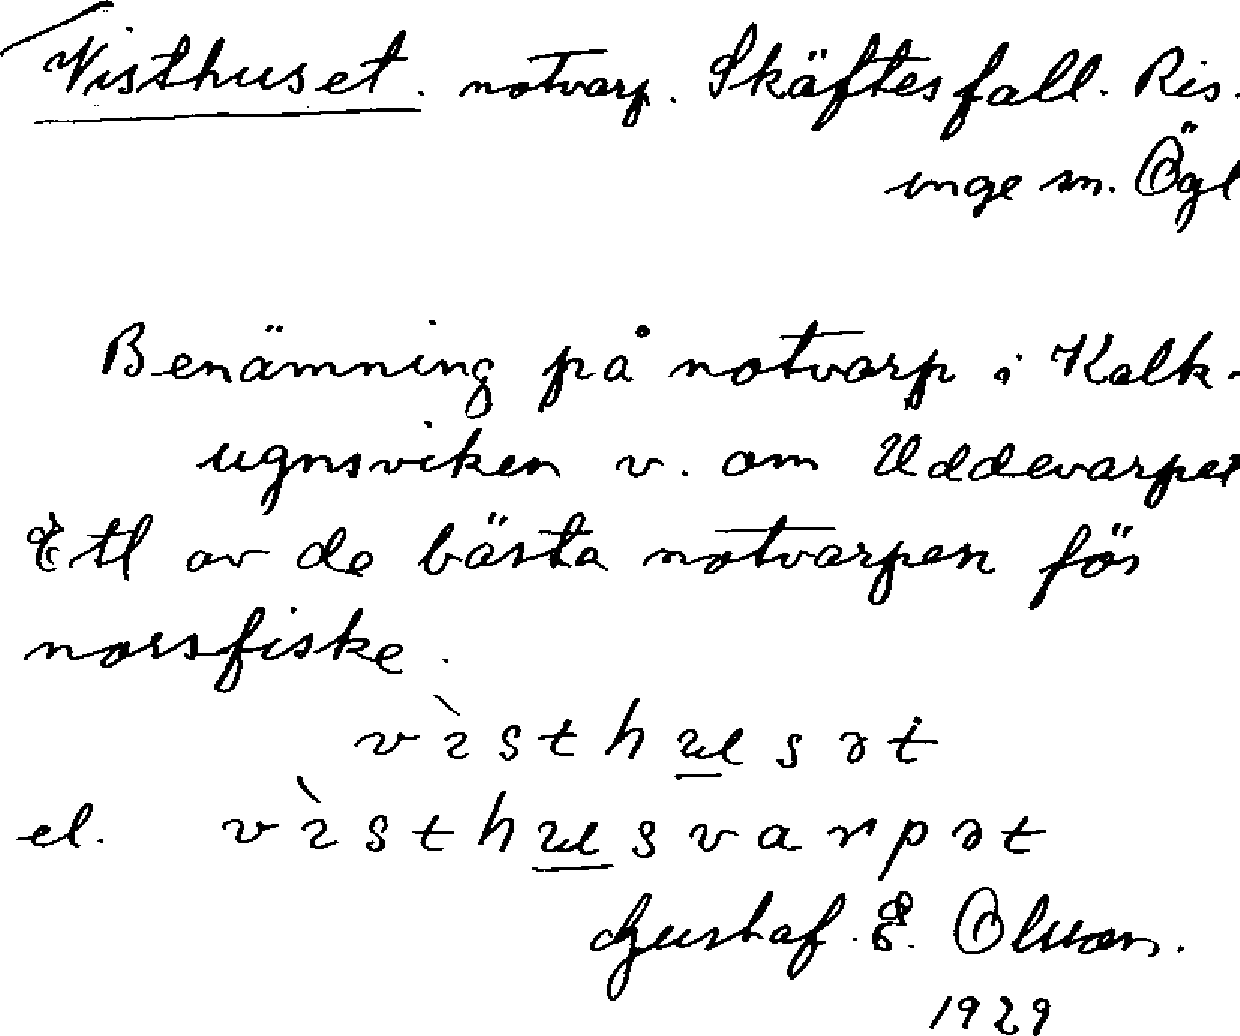 Visthuset. notvarp. Skäftesfall. Ris-
inge sn. Ögl
Benämning på notvarp i Kalk-
ugnsviken v. om Uddevarpet
Ett av de bästa notvarpen för
norsfiske.
vìsthu̲sət
el. vìsthu̲svarpət
Gustaf. E. Olsson.
1929